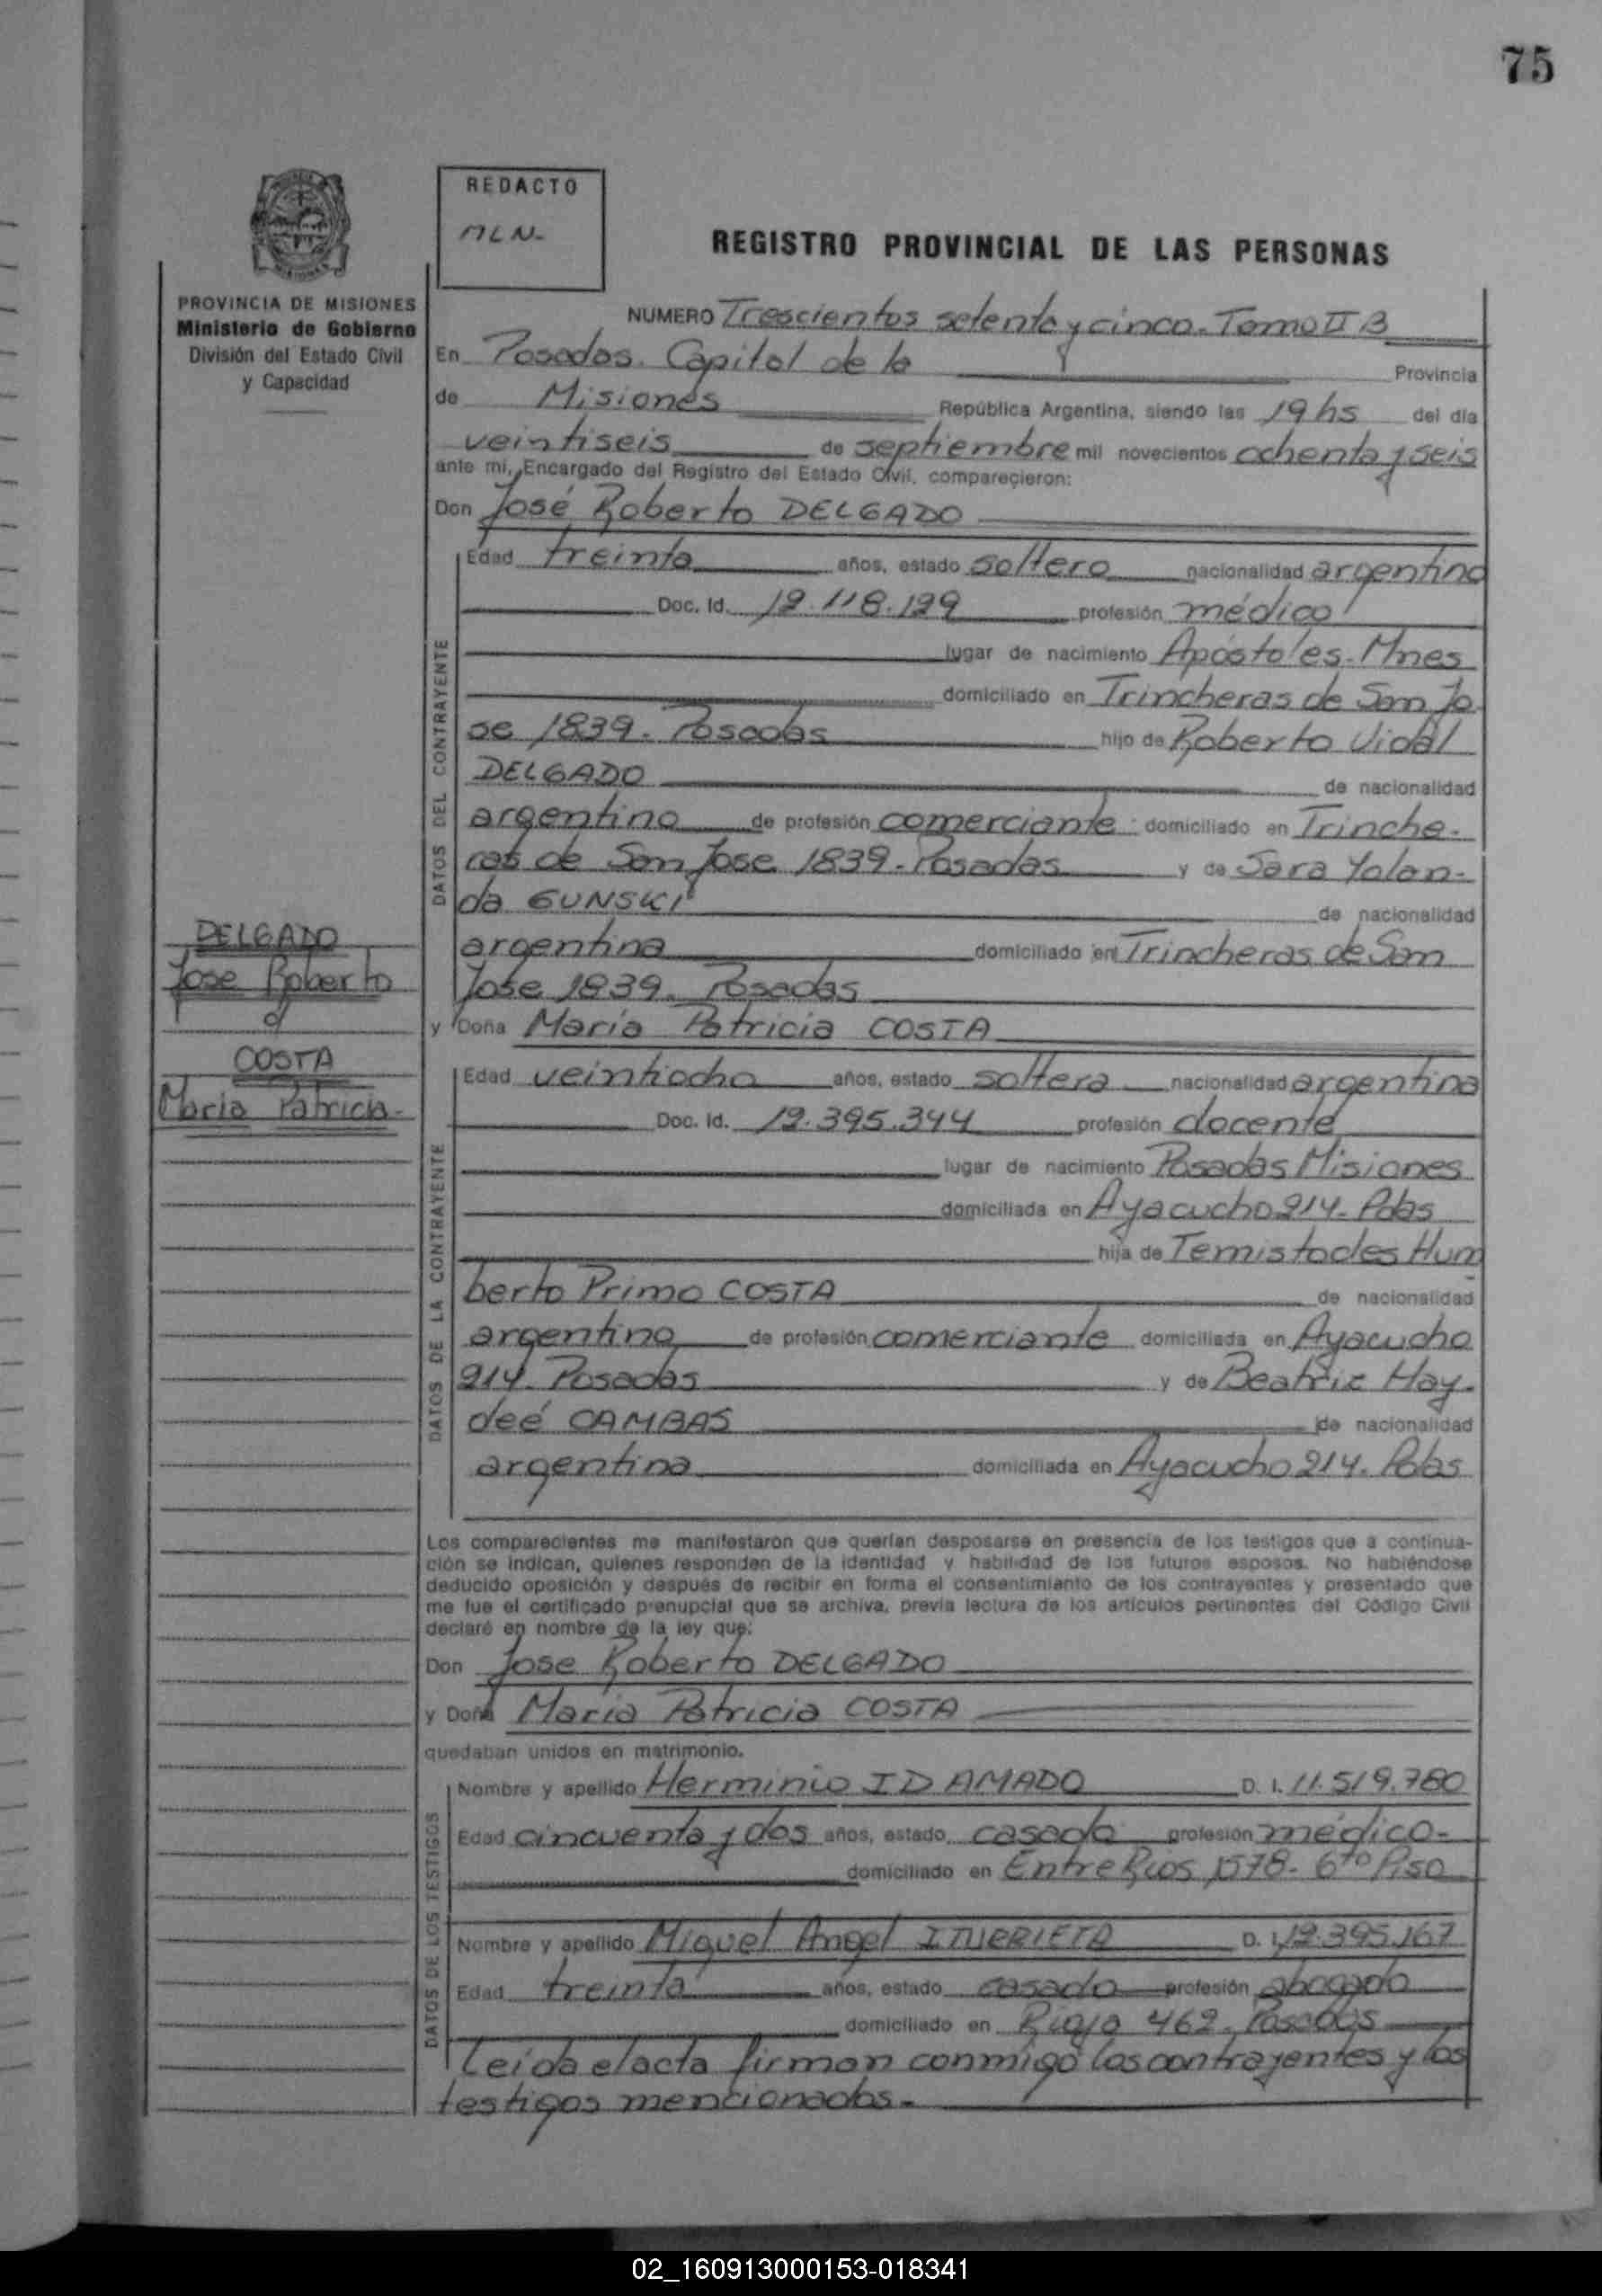 75
REDACTO
MLN-
REGISTRO PROVINCIAL DE LAS PERSONAS
PROVINCIA DE MISIONES
Ministerio de Gobierno
División del Estado Civil
y Capacidad
NUMERO Trescientos setenta y cinco. Tomo II B
En Posadas. Capital de la Provincia
de Misiones República Argentina, siendo las 19 hs del día
veintiseis de septiembre mil novecientos ochenta y seis
ante mi, Encargado del Registro del Estado Civil, comparecieron:
Don José Roberto DELGADO
DATOS DEL CONTRAYENTE
Edad treinta años, estado soltero nacionalidad argentino
Doc. Id. 12.118.129 profesión médico
lugar de nacimiento Apóstoles-Mnes
domiciliado en Trincheras de San Jo
se 1839. Posadas hijo de Roberto Vidal
DELGADO de nacionalidad
argentino de profesión comerciante domiciliado en Trinche-
ras de San Jose 1839-Posadas y de Sara Yolan-
da GUNSKI de nacionalidad
argentina domiciliado en Trincheras de San
Jose 1839. Posadas
DELGADO
Jose Roberto
COSTA
Maria Patricia-
y Doña María Patricia COSTA
DATOS DE LA CONTRAYENTE
Edad veintiocho años, estado soltera nacionalidad argentina
Doc. Id. 12.395.344 profesión docente
lugar de nacimiento Posadas Misiones
domiciliada en Ayacucho 214- Pdas
hija de Temistocles Hum
berto Primo COSTA de nacionalidad
argentino de profesión comerciante domiciliada en Ayacucho
214. Posadas y de Beatriz Hay-
deé CAMBAS de nacionalidad
argentina domiciliada en Ayacucho 214. Pdas
Los comparecientes me manifestaron que querían desposarse en presencia de los testigos que a continua-
ción se indican, quienes responden de la identidad y habilidad de los futuros esposos. No habiéndose
deducido oposición y después de recibir en forma el consentimiento de los contrayentes y presentado que
me fue el certificado prenupcial que se archiva, previa lectura de los artículos pertinentes del Código Civil
declaré en nombre de la ley que:
Don Jose Roberto DELGADO
y Doña Maria Patricia COSTA
quedaban unidos en matrimonio.
DATOS DE LOS TESTIGOS
Nombre y apellido Herminio ID AMADO D. I. 11.519.780
Edad cincuenta y dos años, estado casado profesión médico-
domiciliado en Entre Rios 1578- 6to Piso
Nombre y apellido Miguel Angel ITURRIETA D. I. 12.395.167
Edad treinta años, estado casado profesión abogado
domiciliado en Rioja 462. Posadas
Leida el acta firman conmigo los contrayentes y los
testigos mencionados.-
02_160913000153-018341